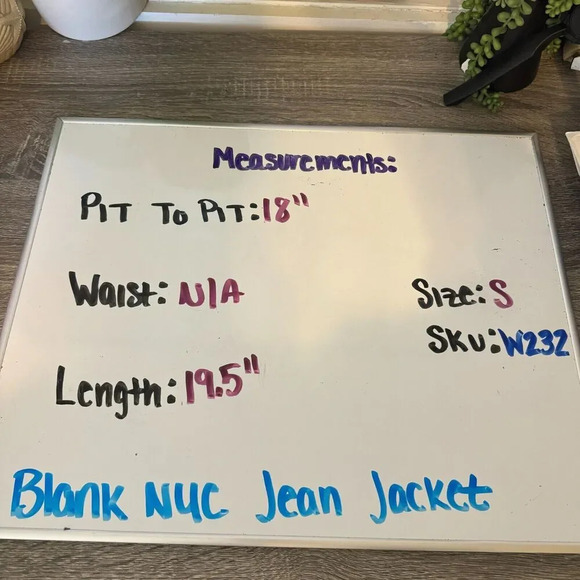 Measurements:
PIT To PIT: 18"
Waist: N/A
Size: S
SKU: W232
Length: 19.5"
Blank NYC Jean Jacket